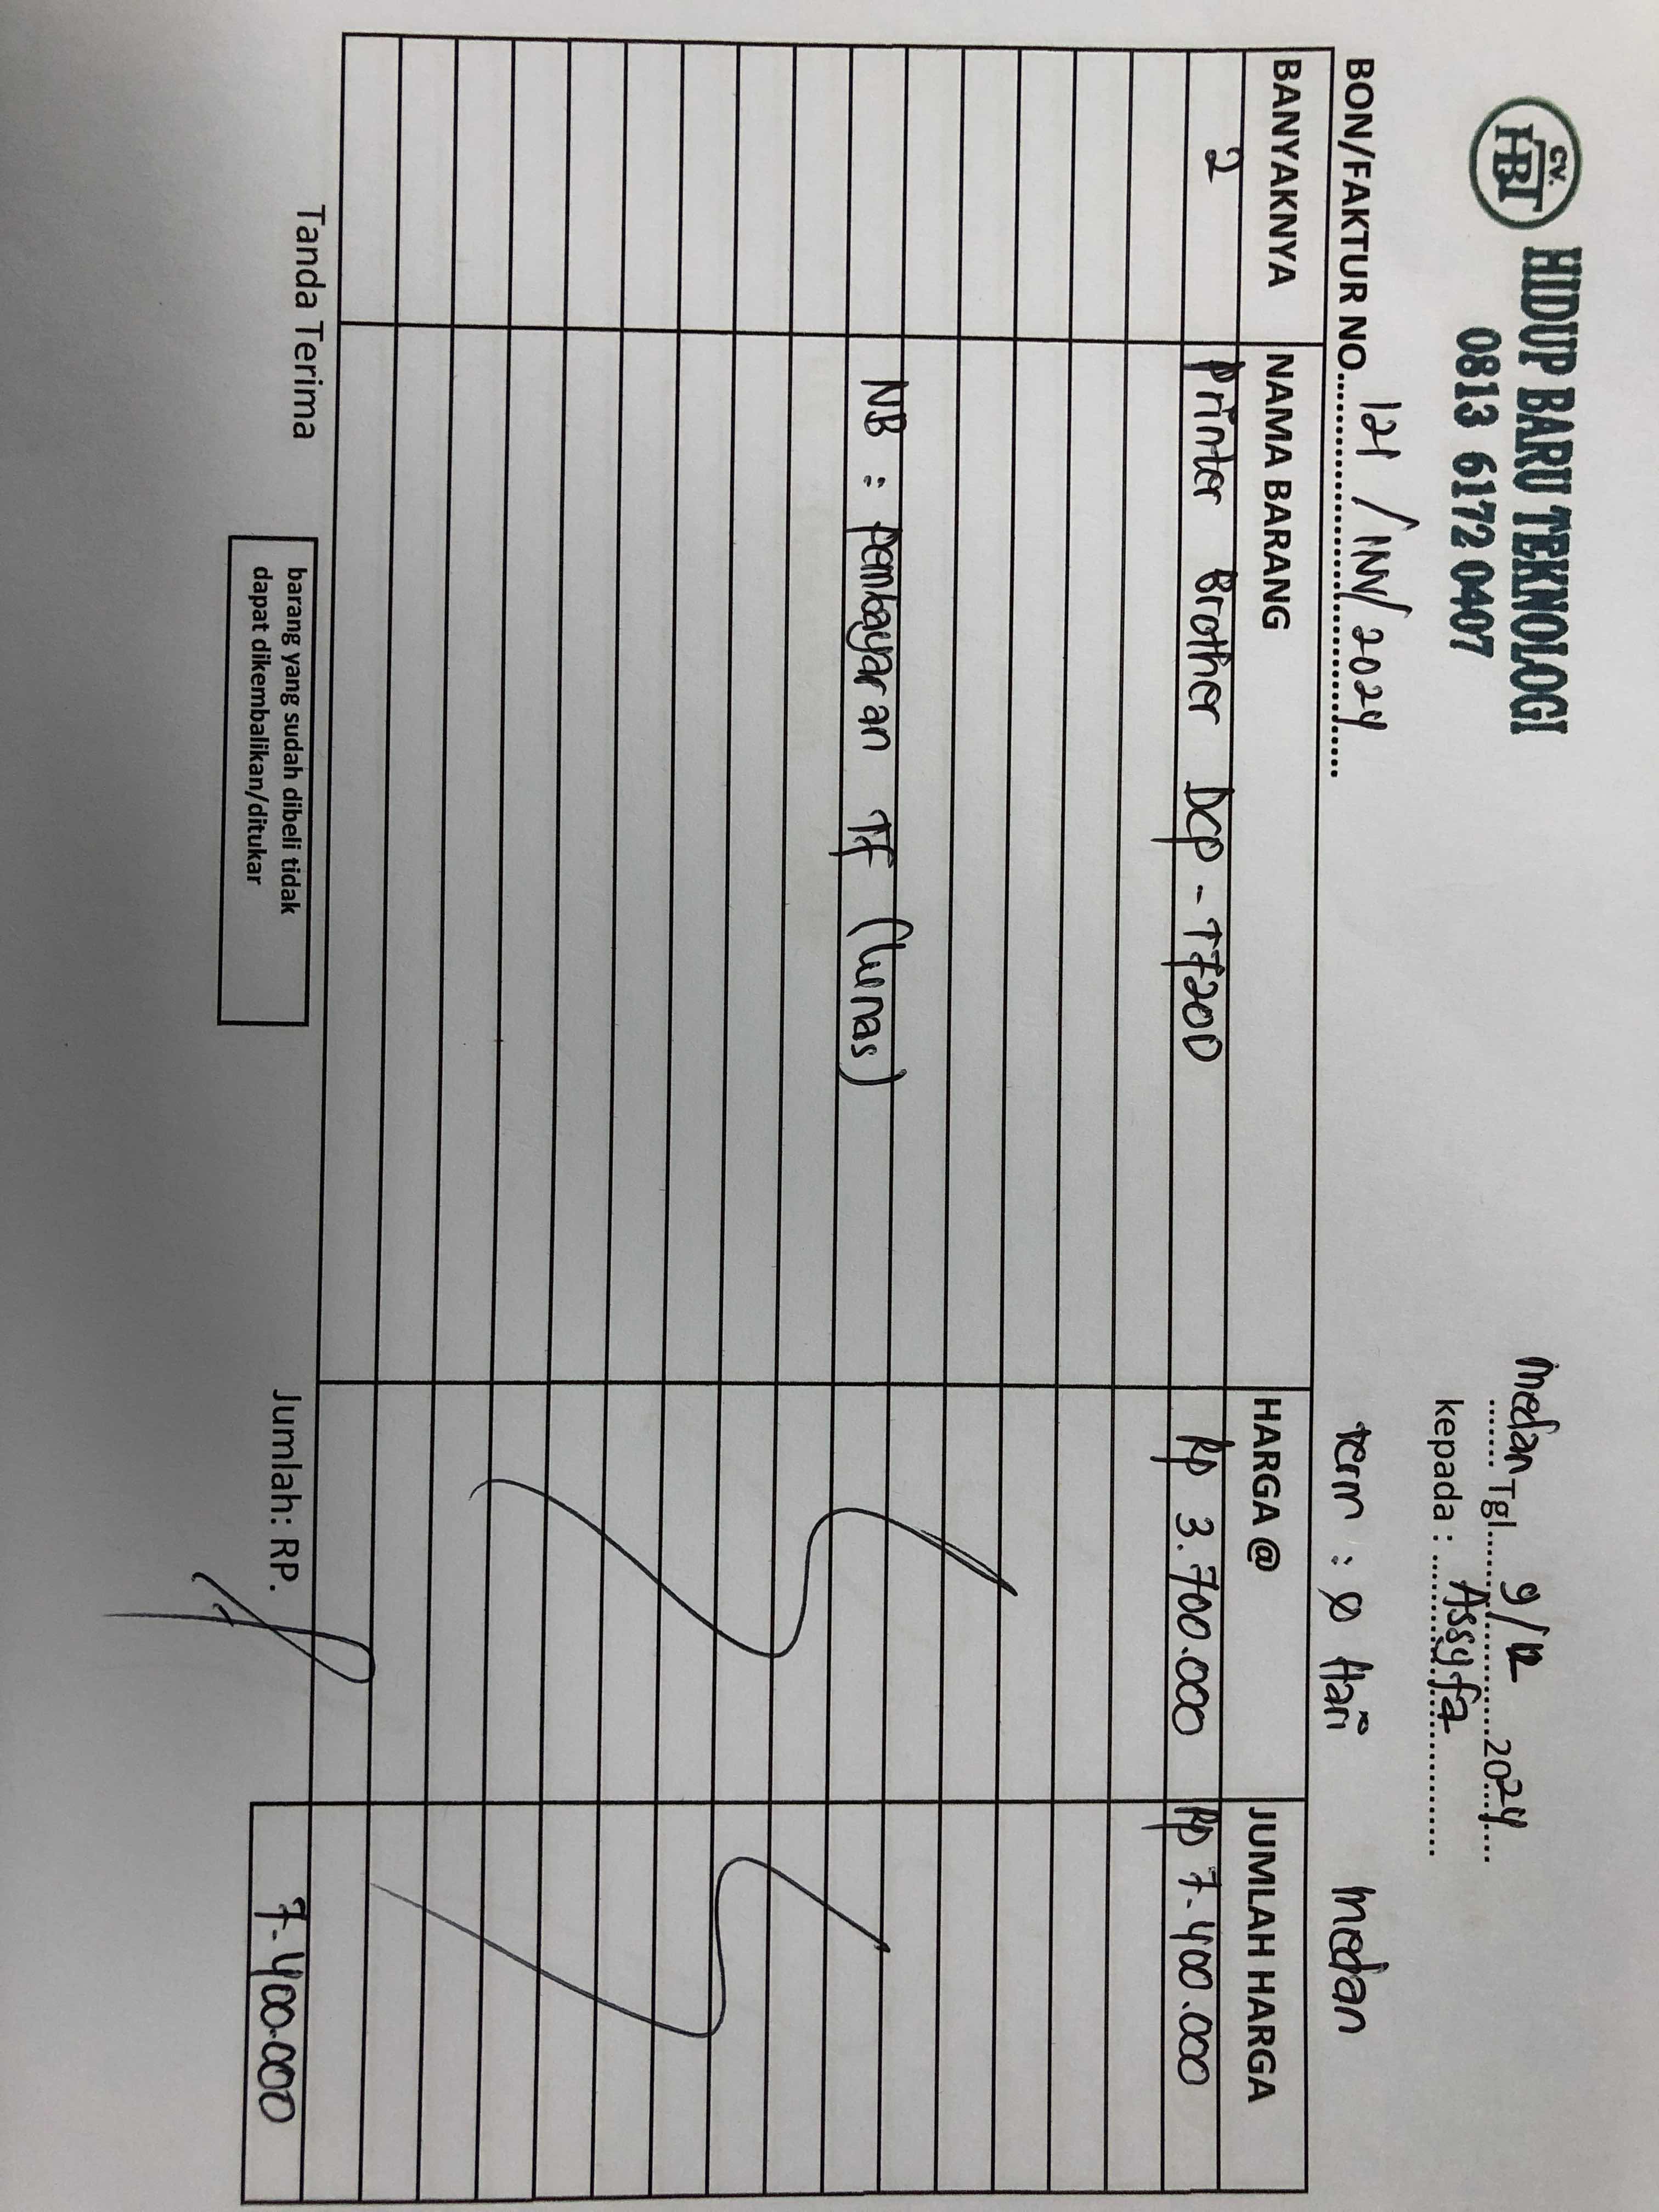 CV.
HBT
HIDUP BARU TEKNOLOGI
0813 6172 0407
Medan Tgl 9/12 2024
kepada : Assyfa
Medan
BON/FAKTUR NO. 121 / INV/ 2024
term : 0 Hari
BANYAKNYA NAMA BARANG HARGA @ JUMLAH HARGA
2 Printer Brother DCP - T720D Rp 3.700.000 Rp 7.400.000
NB : Pembayaran TF (lunas)
Tanda Terima
barang yang sudah dibeli tidak
dapat dikembalikan/ditukar
Jumlah: RP. 7.400.000